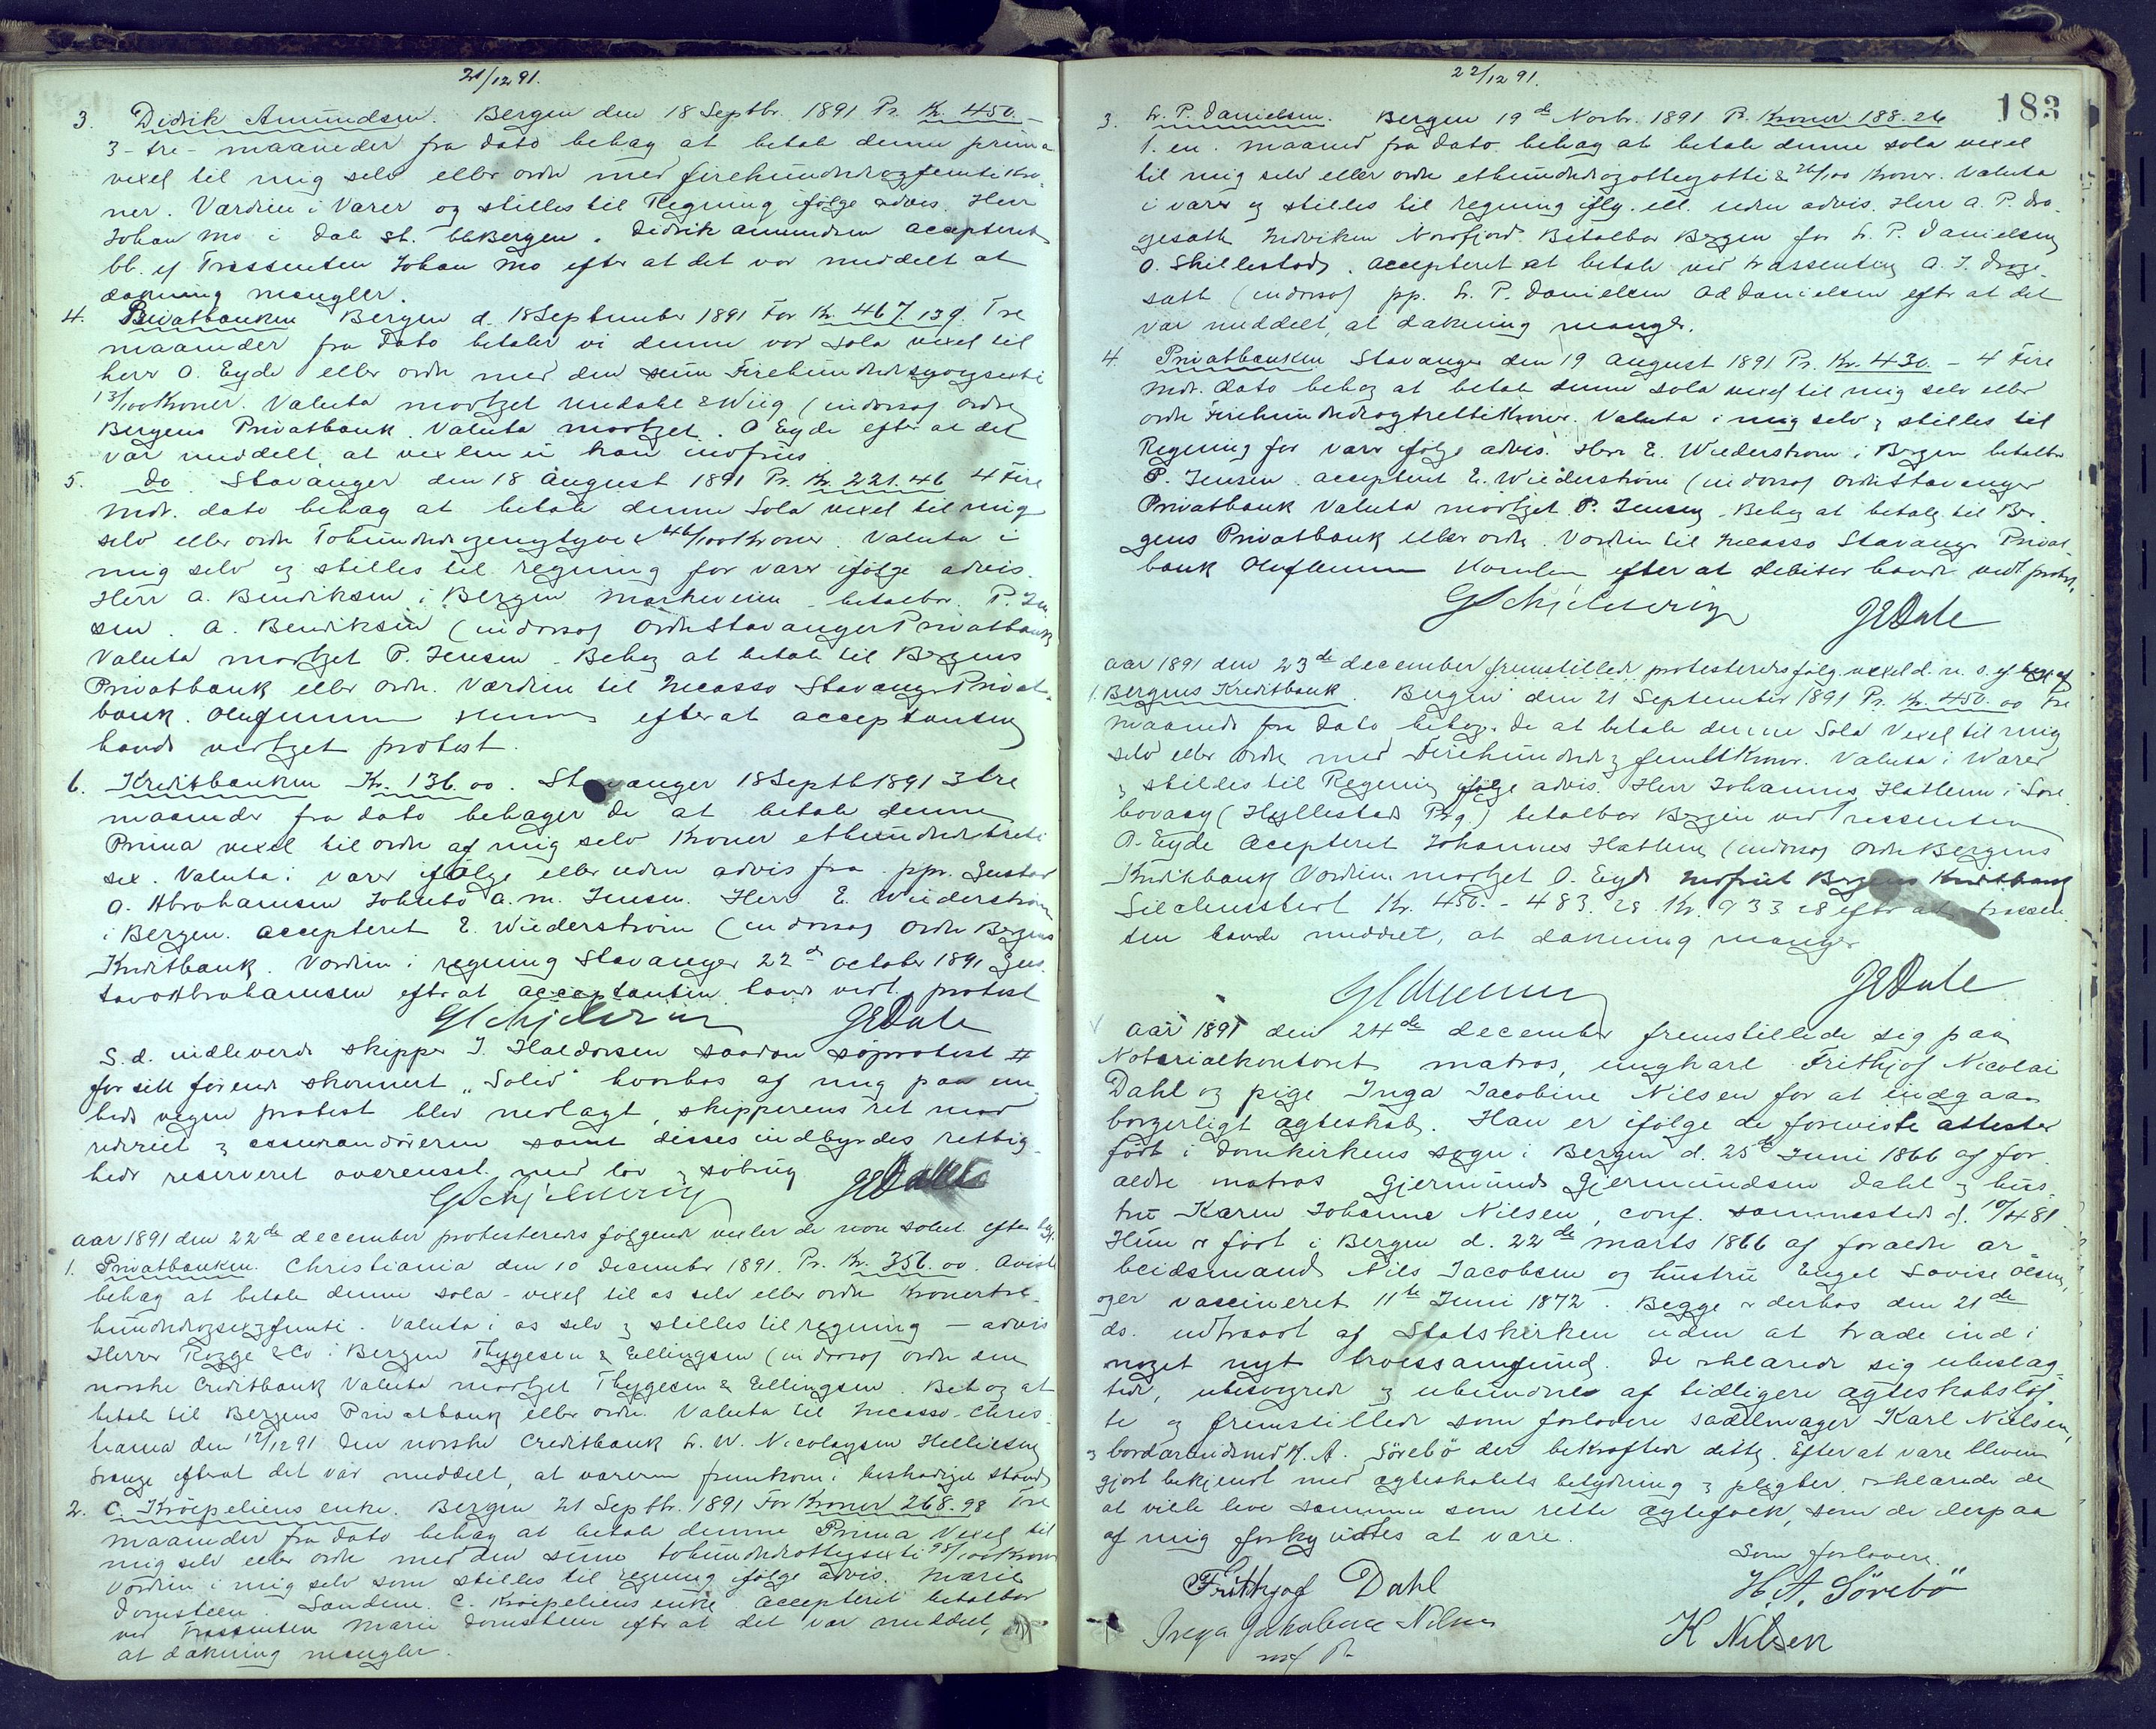 21/12 91.
3. Didrik Amundsen. Bergen den 18 Septbr. 1891 Pr. Kr. 450.–
3 - tre - maaneder fra dato behag at betale denne prima
vexel til mig selv eller ordre med firehundredeogfemti Kro-
ner. Værdien i Varer og stilles til Regning ifølge advis. Herr
Johan Mo i Dale St. Bergen. Didrik Amundsen accepteret
Trassenten Johan Mo efter at det var meddelt at
dækning mangler.
4. Privatbanken Bergen d. 18 September 1891 For Kr. 467,13 Tre
maaneder fra dato betaler vi denne vor Sola vexel til
herr O. Eyde eller ordre med den sum Firehundrede
13/100 Kroner. Valuta modtget & Wiig (indorso) ordre
Bergens Privatbank. Valuta modtget. O Eyde efter at det
var meddelt, at vexlen ei kan indfries
5. do. Stavanger den 18 August 1891 Pr. Kr. 221.46 4 Fire
mdr. dato behag at betale denne Sola vexel til mig
selv eller ordre Tohundredeogenogtyve & 46/100 Kroner. Valuta i
mig selv og stilles til regning for varer ifølge advis.
Herr A. Bendiksen i Bergen Markeveien betalbar P. Jen
sen. A. Bendiksen (indorso) Ordre Stavanger Privatbank
Valuta modtget P. Jensen – Behag at betale til Bergens
Privatbank eller ordre. Værdien til Incasso Stavanger Privat-
bank. efter at acceptanten
havde vedtget protest.
6. Kreditbanken Kr. 136.00. Stavanger 18 Septb 1891 3 tre
maaneder fra dato behager De at betale denne
Prima vexel til ordre af mig selv Kroner ethundredetreti
sex. Valuta i varer ifølge eller uden advis fra ppr. Gustav
A. Abrahamsen A. M. Jensen. Herr E. Wiederstrøm
i Bergen. accepteret E. Wiederstrøm (indorso) Ordre Bergens
Kreditbank. Værdien i regning Stavanger 22 d October 1891 Gus
tav Abrahamsen efter at acceptanten havde vedt. protest
G Schjelderup JEDale
S. d. indleverede skipper J. Haldorsen saadan søprotest #
for sitt førende skonnert "Solid" hvorhos af mig paa em-
beds vegne protest blev nedlagt, skipperens ret mod
rederiet og assurandørerne samt disses indbyrdes rettig-
heder reserveret overensst. med lov og søbrug
G Schjelderup JEDale
Aar 1891 den 22de december protesteredes følgende vexler de non solut. efter beg.
1. Privatbanken. Christiania den 10 december 1891. Pr. Kr. 356.00. Avista
behag at betale denne sola - vexel til os selv eller ordre Kroner tre-
hundredeogsexogfemti. Valuta i os selv og stilles til regning – advis
Herrer Rogge & Co i Bergen Thygesen & Ellingsen (indorso) ordre den
norske Creditbank Valuta modtget Thygesen & Ellingsen. Behag at
betale til Bergens Privatbank eller ordre. Valuta til Incasso - Chris-
tiania den 12/12 91 Den norske Creditbank Fr. W. Nicolaysen
efter at det var meddelt, at varerne fremkom i beskadiget stand
2. C. Krøepeliens enke. Bergen 21 Septbr. 1891 For Kroner 268.98 Tre
maaneder fra dato behag at betale denne Prima Vexel til
mig selv eller ordre med den sum tohundredeotteogsexti 98/100 Kroner
Værdien i mig selv som stilles til regning ifølge advis. Marie
Domsteen. Sandene. C. Krøepeliens enke accepteret betalbar
ved Trassenten Marie Domsteen efter at det var meddelt,
at dækning mangler.
22/12 91.
183
3. Fr. P. Danielsen. Bergen 19de Novbr. 1891 Pr. Kroner 188.26
1. en. maaned fra dato behag at betale denne sola vexel
til mig selv eller ordre ethundredeogotteogotti & 26/100 Kroner. Valuta
i varer og stilles til regning iflg. ell. uden advis. Herr A. P. Dra-
gesæth Indviken Nordfjord. Betalbar Bergen for Fr. P. Danielsen
O. Skillestad. accepteret at betale ved trassenten A. J. Drage-
sæth (indorso) pp. Fr. P. Danielsen Ad Danielsen efter at det
var meddelt, at dækning mangler.
4. Privatbanken Stavanger den 19 August 1891 Pr. Kr. 430. – 4 Fire
mdr. dato behag at betale denne sola vexel til mig selv eller
ordre Firehundredeogtretti Kroner. Valuta i mig selv og stilles til
Regning for varer ifølge advis. Herr E. Wiederstrøm i Bergen betalbar
P. Jensen. accepteret E. Wiederstrøm (indorso) ordre Stavanger
Privatbank Valuta modtget P. Jensen – Behag at betale til Ber-
gens Privatbank eller ordre. Værdien til Incasso Stavanger Privat-
bank efter at debitor havde vedt protest.
G Schjelderup JEDale
Aar 1891 den 23de december fremstilledes protesteredes følg. vexel d. n. s. ef. beg. af
1. Bergens Kreditbank. Bergen den 21 September 1891 Pr. Kr. 450.00 Tre
maaneder fra dato behag. De at betale denne Sola Vexel til mig
selv eller ordre med Firehundredeog femti Kroner. Valuta i Warer
og stilles til Regning ifølge advis. Herr Johannes Hatlem i Søre
bøvaag (Hyllestad Prg.) betalbar Bergen ved Trassenten
O. Eyde Accepteret Johannes Hatlem (indorso) Ordre Bergens
Kreditbank Værdien modtget O. Eyde Indfriet Bergens Kreditbank
Kr. 450. - 483.28 Kr. 933 28 efter at trassen
ten havde meddelt, at dækning mangler
G Schjelderup JEDale
Aar 1891 den 24de december fremstillede sig paa
Notarialkontoret matros, ungkarl Frithjof Nicolai
Dahl og pige Inga Jacobine Nilsen for at indgaa
borgerligt ægteskab. Han er ifølge de foreviste attester
født i Domkirkens sogn i Bergen d. 25de Juni 1866 af for-
ældre matros Gjermund Gjermundsen Dahl og hus-
tru Karen Johanne Nilsen, conf. sammesteds d. 10/4 81.
Hun er født i Bergen d. 22de Marts 1866 af forældre ar-
beidsmand Nils Jacobsen og hustru Engel Lovise Olsen,
og er vaccineret 11te Juni 1872. Begge er derhos den 21de
ds. udtraadt af Statskirken uden at træde ind i
noget nyt troessamfund. De erklærede sig ubeslæg-
tede, ubesvogrede og ubundne af tidligere ægteskabsløf-
te og fremstillede som forlovere sadelmager Karl Nielsen,
og bordarbeidsmd H. A. Sørebø der bekræftede dette. Efterat være bleven
gjort bekjendt med ægteskabets betydning og pligter, erklærede de
at ville leve sammen som rette ægtefolk, som de derpaa
af mig forkyndtes at være.
Som forlovere.
Frithjof Dahl H. A. Sörebö
Inga Jakobine Nilsen K Nilsen